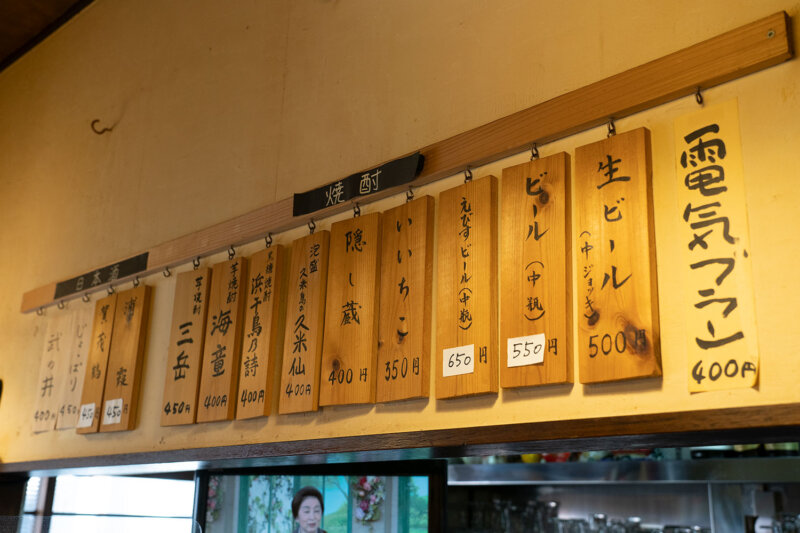 電気ブラン
400円
生ビール
(中ジョッキ)
500円
ビール(中瓶)
550円
えびすビール(中瓶)
650円
焼酎
いいちこ
350円
隠し蔵
400円
泡盛
久米島の久米仙
400円
黒糖焼酎
浜千鳥乃詩
400円
芋焼酎
海童
400円
芋焼酎
三岳
450円
日本酒
浦霞
450円
賀茂鶴
450
じょっぱり
450円
武の井
400円